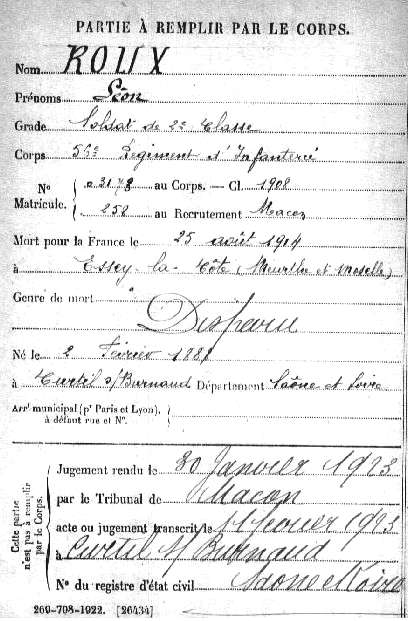 PARTIE À REMPLIR PAR LE CORPS.
Nom ROUX
Prénoms Léon
Grade Soldat de 2e Classe
Corps 56e Régiment d'Infanterie
No Matricule. 03178 au Corps. — Cl. 1908
258 au Recrutement Macon
Mort pour la France le 25 août 1914
à Essey-la-Côte (Meurthe et Moselle)
Genre de mort Disparu
Né le 2 Février 1888
à Curtil s/Burnand Département Saône et Loire
Arrt municipal (pr Paris et Lyon), à défaut rue et No.
Cette partie n'est pas à remplir par le Corps.
Jugement rendu le 30 Janvier 1923
par le Tribunal de Macon
acte ou jugement transcrit le 11 1923
à Curtil s/ Burnand
No du registre d'état civil Saone et Loire
269-708-1922. [26434]